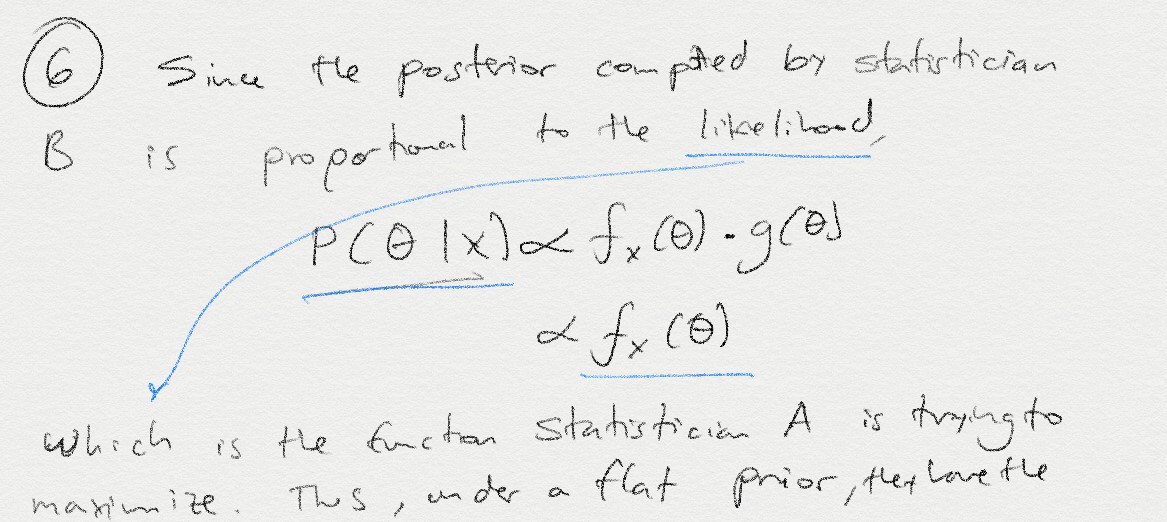 ⑥ Since the posterior computed by statistician
B is proportional to the likelihood,
P(θ|x) ∝ f_x(θ) · g(θ)
∝ f_x(θ)
which is the function statistician A is trying to
maximize. Thus, under a flat prior, they have the